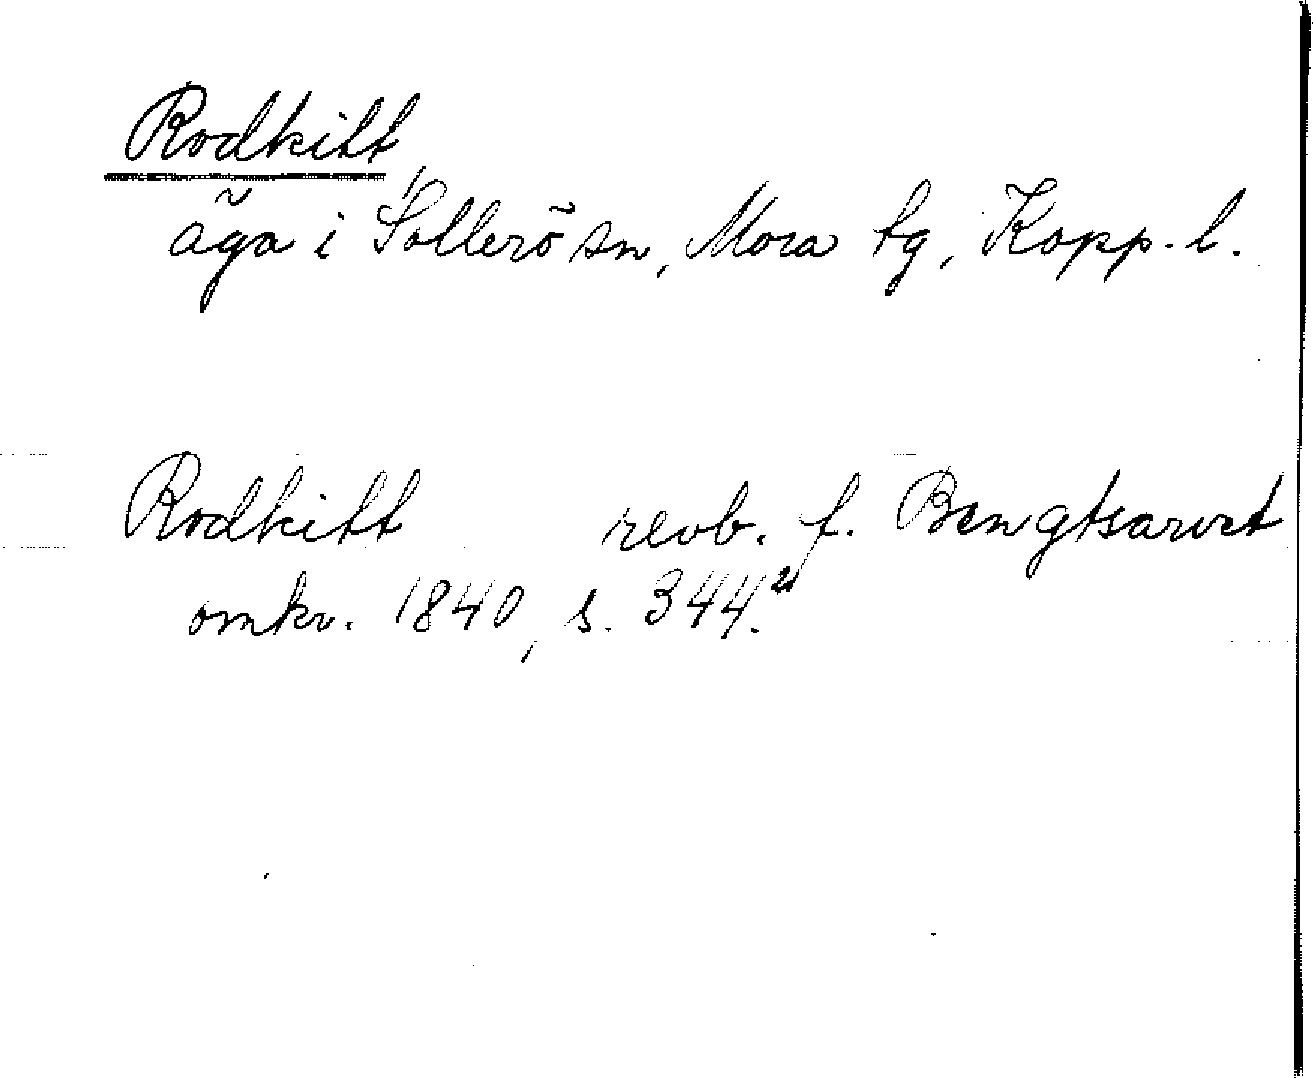 Rodkitt
äga i Sollerö sn, Mora tg, Kopp. l.
Rodkitt revb. f. Bengtsarvet
omkr. 1840, s. 344.